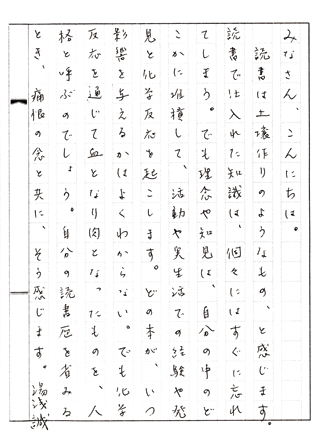 みなさん、こんにちは。
読書は土壌作りのようなもの、と感じます。
読書で仕入れた知識は、個々にはすぐに忘れ
てしまう。でも理念や知見は、自分の中のど
こかに堆積して、活動や実生活での経験や発
見と化学反応を起こします。どの本が、いつ
影響を与えるかはよくわからない。でも化学
反応を通じて血となり肉となったものを、人
格と呼ぶのでしょう。自分の読書歴を省みる
とき、痛恨の念と共に、そう感じます。湯浅誠